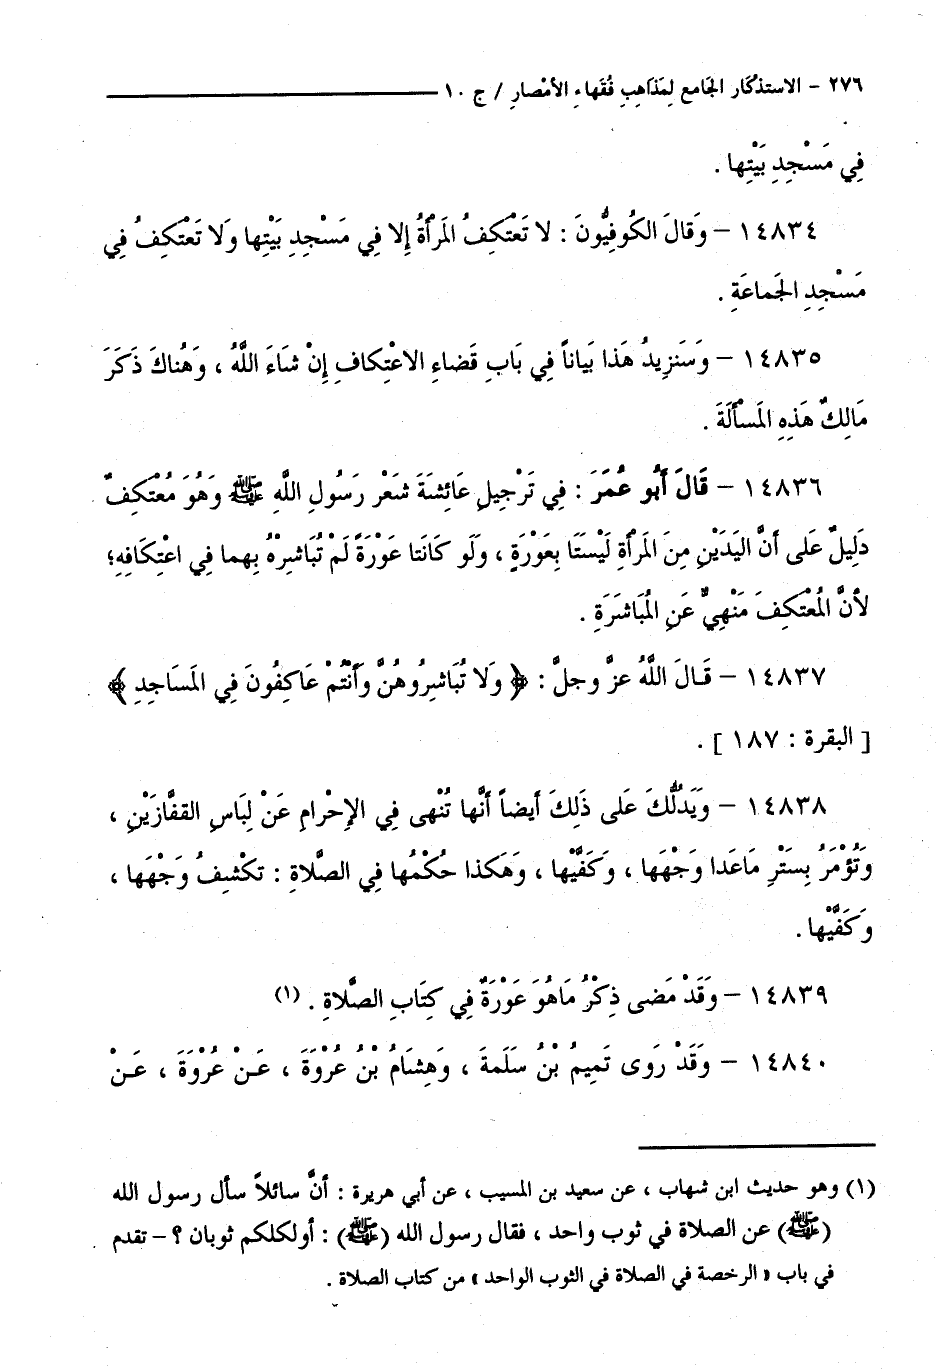 ٢٧٦ – الاستذكار الجَامع لِمَذاهِبِ فُقَهاءِ الأمْصارِ / ج ١٠
فِي مَسْجِدِ بَيْتِها .
١٤٨٣٤ – وَقالَ الكُوفِيُّونَ : لا تَعْتكِفُ المَرْأةُ إِلا فِي مَسْجِدِ بَيْتِها وَلا تَعْتكِفُ فِي
مَسْجِدِ الجَماعَةِ .
١٤٨٣٥ – وَسَنَزِيدُ هَذا بَياناً فِي بَابِ قَضاءِ الاعْتِكافِ إِنْ شاءَ اللَّهُ ، وَهُناكَ ذَكَرَ
مَالِكٌ هَذِهِ المَسْألَةَ .
١٤٨٣٦ – قَالَ أَبُو عُمَرَ : فِي تَرْجِيلِ عَائِشَةَ شَعْرَ رَسُولِ اللَّهِ ﷺ وَهُوَ مُعْتَكِفٌ
دَلِيلٌ عَلى أَنَّ اليَدَيْنِ مِنَ المَرْأةِ لَيْسَتَا بِعَوْرَةٍ ، وَلَو كَانَتا عَوْرَةً لَمْ تُبَاشِرْهُ بِهما فِي اعْتِكَافِهِ؛
لأنَّ المُعْتكِفَ مَنْهِيٌّ عَنِ المُبَاشَرَةِ .
١٤٨٣٧ – قَالَ اللَّهُ عزَّ وجلَّ : ﴿ وَلا تُبَاشِرُوهُنَّ وَأَنْتُمْ عَاكِفُونَ فِي المَسَاجِدِ ﴾
[ البقرة : ١٨٧ ] .
١٤٨٣٨ – وَيَدُلُّكَ عَلى ذَلِكَ أيضاً أنَّها تُنْهى فِي الإِحْرامِ عَنْ لِبَاسِ القفَّازَيْنِ ،
وَتُؤْمَرُ بِسَتْرِ مَاعَدا وَجْهَها ، وَكَفَّيْها ، وَهَكذا حُكْمُها فِي الصَّلاةِ : تكْشِفُ وَجْهَها ،
وَكَفَّيْها .
١٤٨٣٩ – وَقَدْ مَضى ذِكْرُ مَاهُوَ عَوْرَةٌ فِي كِتَابِ الصَّلاةِ . (١)
١٤٨٤٠ – وَقَدْ رَوى تَمِيمُ بْنُ سَلَمةَ ، وَهِشامُ بْنُ عُرْوَةَ ، عَنْ عُرْوَةَ ، عَنْ
(١) وهو حديث ابن شهاب ، عن سعيد بن المسيب ، عن أبي هريرة : أنَّ سائلاً سأل رسول الله
(ﷺ) عن الصلاة في ثوب واحد ، فقال رسول الله (ﷺ) : أولكلكم ثوبان ؟ – تقدم
في باب « الرخصة في الصلاة في الثوب الواحد » من كتاب الصلاة .